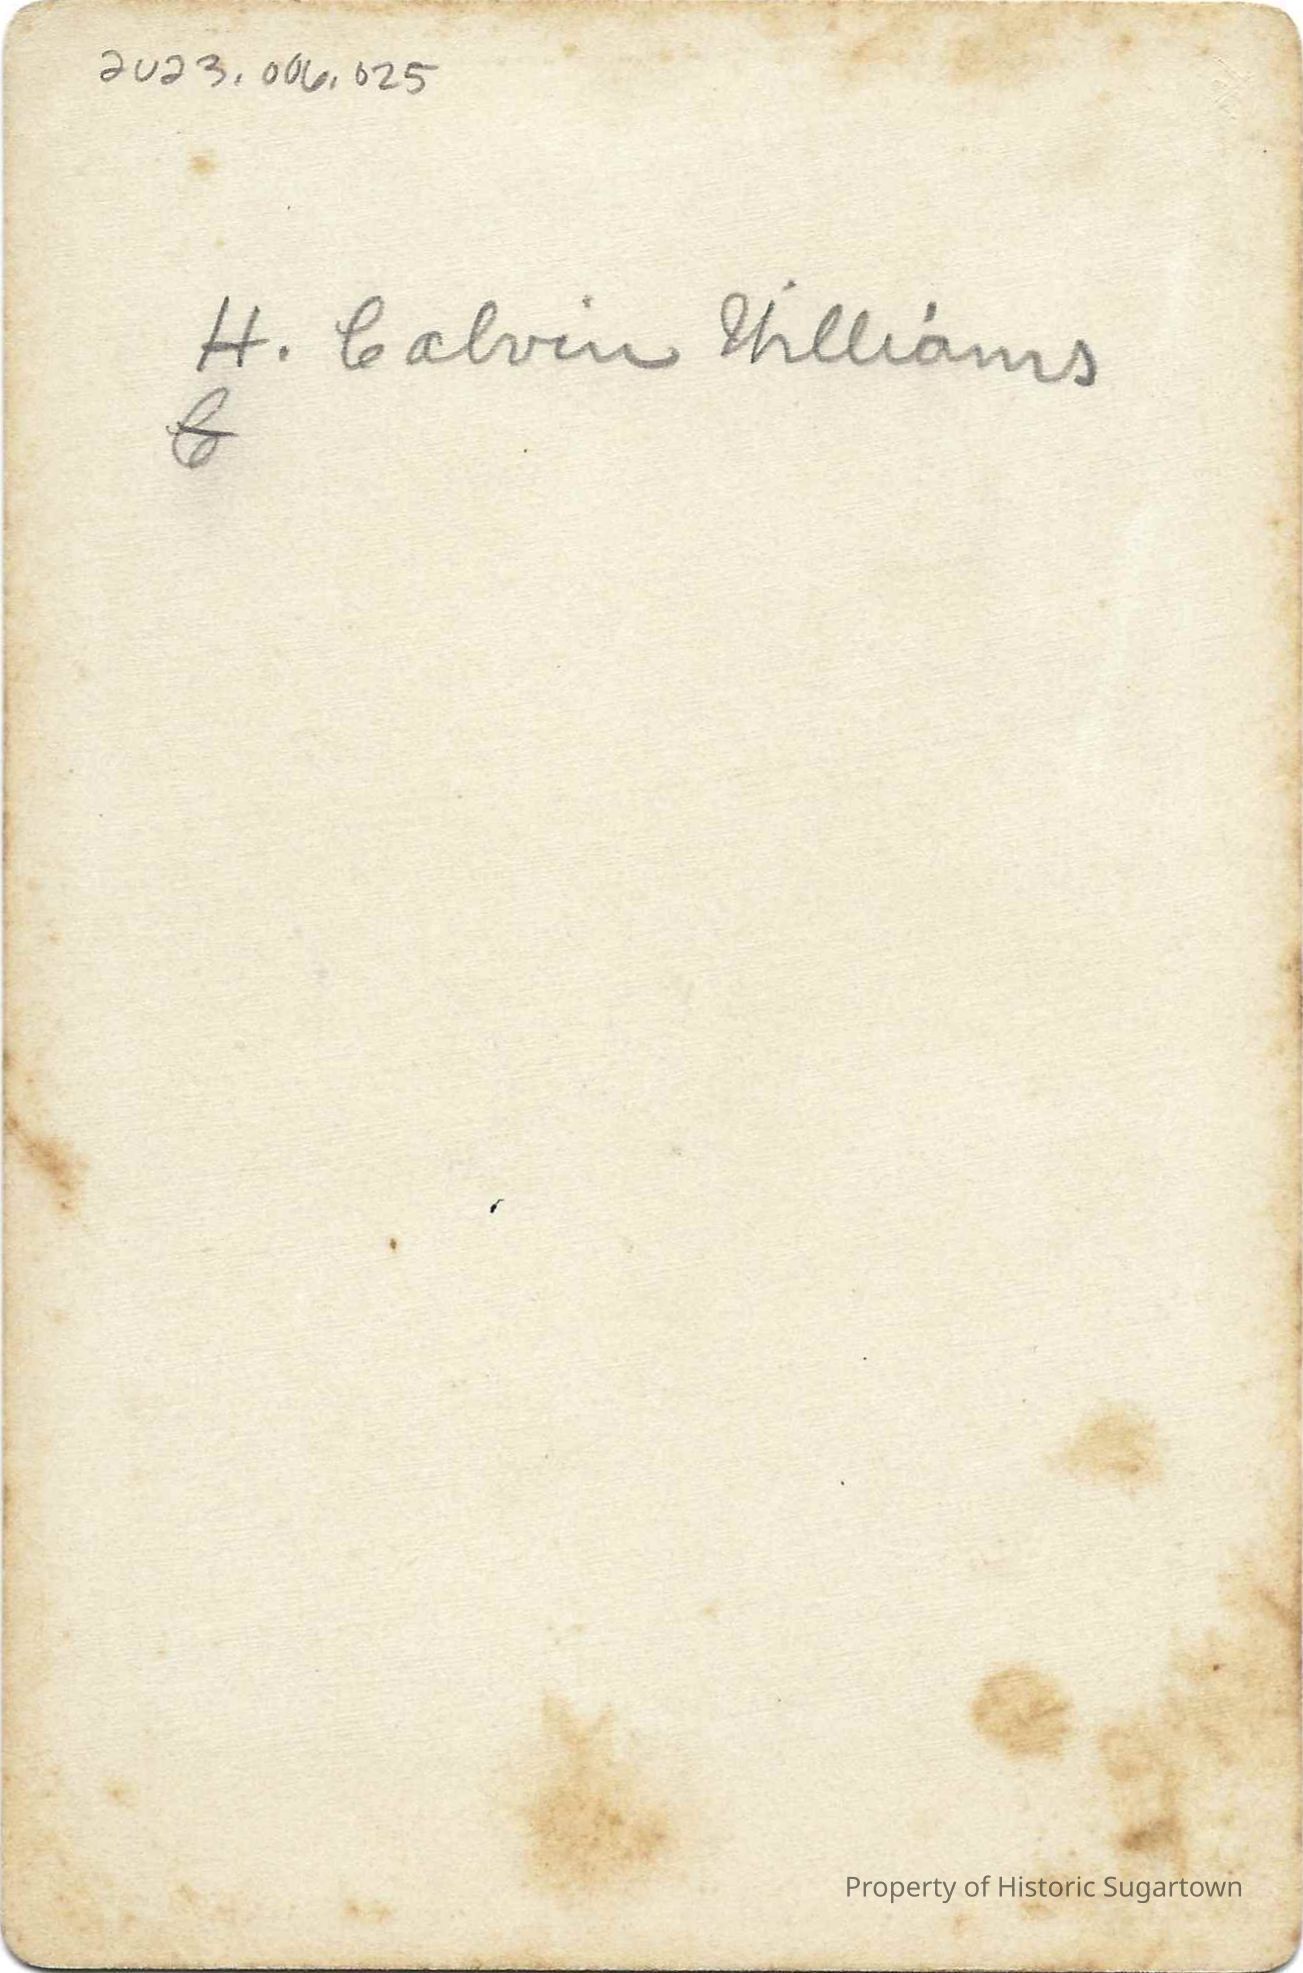 2023.006.025
H. Calvin Williams
C
Property of Historic Sugartown